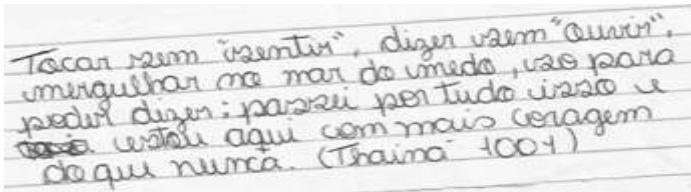 Tocar sem "sentir", dizer sem "ouvir",
mergulhar no mar do medo, só para
poder dizer: passei por tudo isso e
estou aqui com mais coragem
do que nunca. (Thainá 1001)